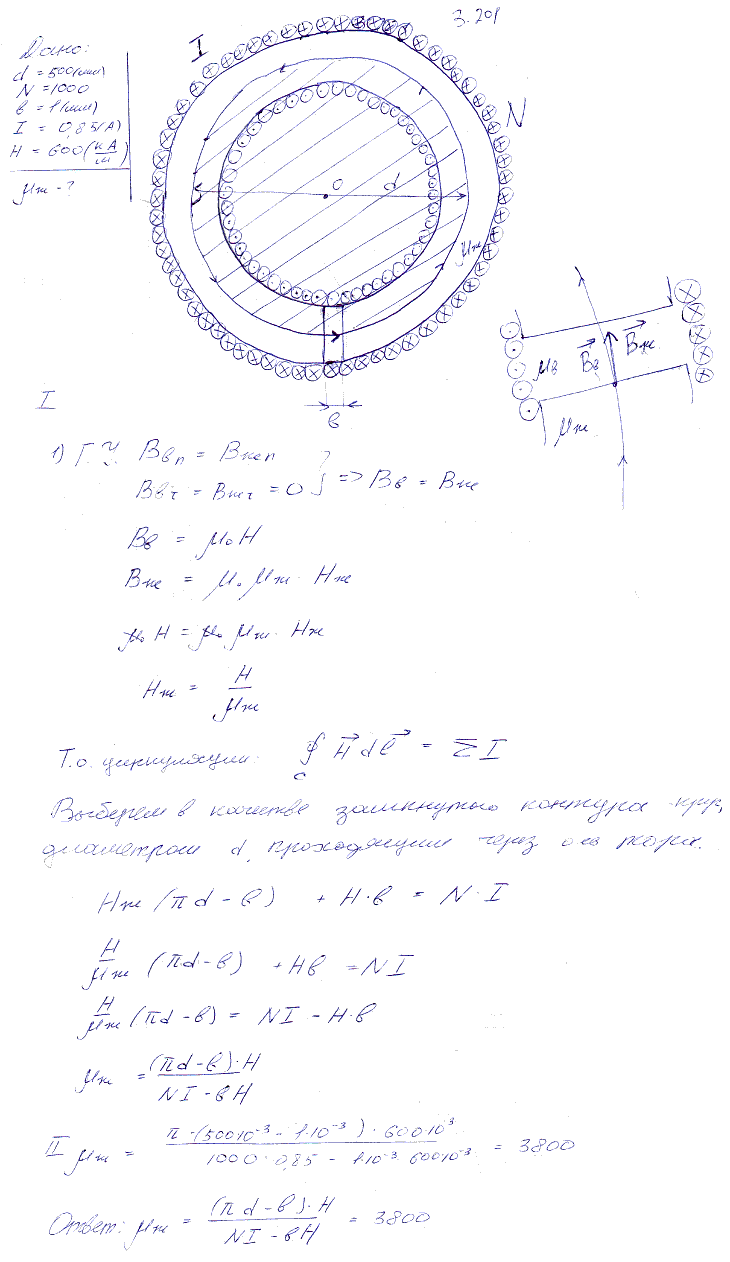 3.201
Дано:
d = 500(мм)
N = 1000
в = 1(мм)
I = 0,85(А)
H = 600(кА/м)
μж - ?
I
N
O
d
μж
в
μв
Bв
Bж
μж
I
1) Г.У. Bвn = Bжn
Bвτ = Bжτ = 0 } => Bв = Bж
Bв = μ₀H
Bж = μ₀ μж · Hж
μ₀ H = μ₀ μж · Hж
Hж = H/μж
Т.о. циркуляции: ∮c H dl = Σ I
Выберем в качестве замкнутого контура
диаметром d, проходящим через
Hж (πd - в) + H·в = N·I
H/μж (πd-в) + Hв = NI
H/μж (πd-в) = NI - H·в
μж = (πd-в)·H / NI-вH
II μж = π·(500·10⁻³ - 1·10⁻³)·600·10³ / 1000·0,85 - 1·10⁻³·600·10⁻³ = 3800
Ответ: μж = (πd-в)·H / NI-вH = 3800